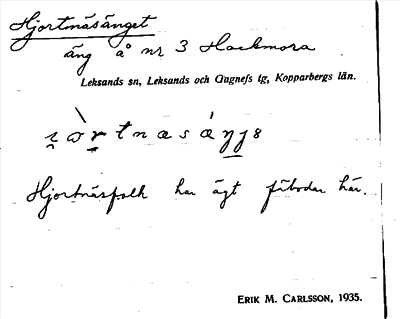 Hjortnäsänget
äng å nr 3 Hackmora
Leksands sn, Leksands och Gagnefs tg, Kopparbergs län.
Hjortnäsfolk har ägt fäbodar här.
ERIK M. CARLSSON, 1935.